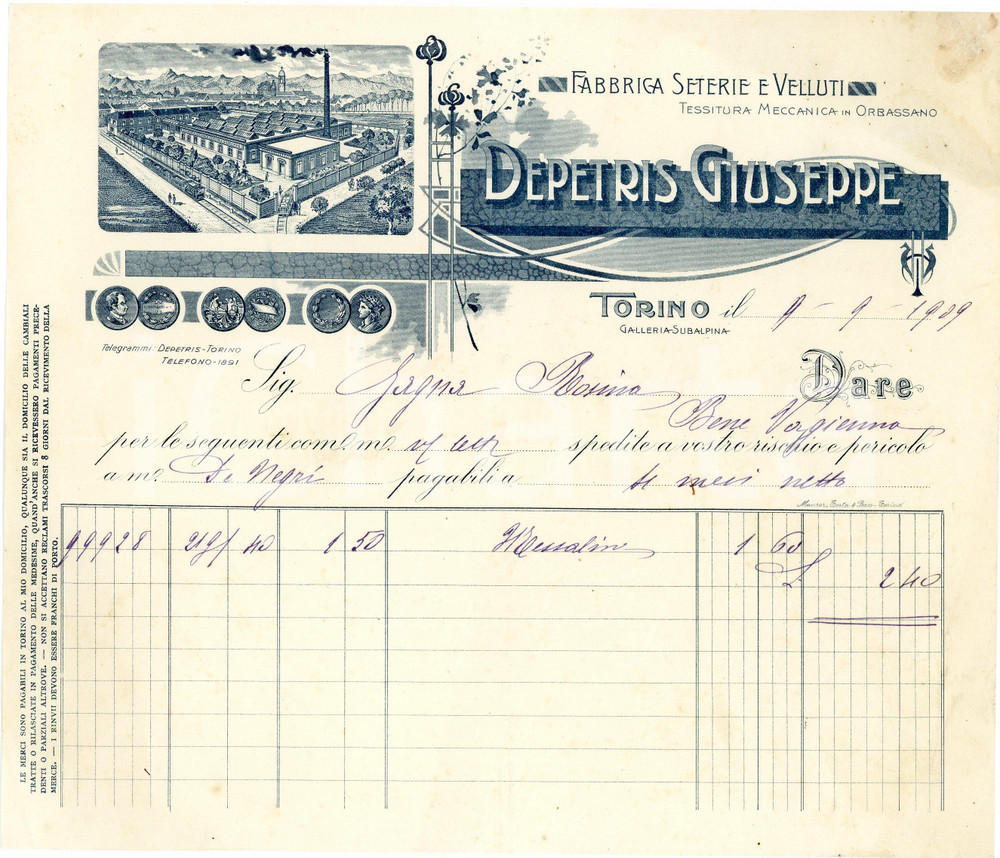 FABBRICA SETERIE E VELLUTI
TESSITURA MECCANICA IN ORBASSANO
DEPETRIS GIUSEPPE
TORINO il 9-9-1909
GALLERIA SUBALPINA
Telegrammi: DEPETRIS-TORINO
TELEFONO-1891
Sig. Gagna Rosina Dare
Bene Vagienna
per le seguenti com. m. spedite a vostro rischio e pericolo
a m. De Negri pagabili a netto
99928 40 1 50 Messalin 1 60
L 2 40
LE MERCI SONO PAGABILI IN TORINO AL MIO DOMICILIO, QUALUNQUE SIA IL DOMICILIO DELLE CAMBIALI
TRATTE O RILASCIATE IN PAGAMENTO DELLE MEDESIME, QUAND'ANCHE SI RICEVESSERO PAGAMENTI PRECE-
DENTI O PARZIALI ALTROVE. — NON SI ACCETTANO RECLAMI TRASCORSI 8 GIORNI DAL RICEVIMENTO DELLA
MERCE. — I RINVII DEVONO ESSERE FRANCHI DI PORTO.